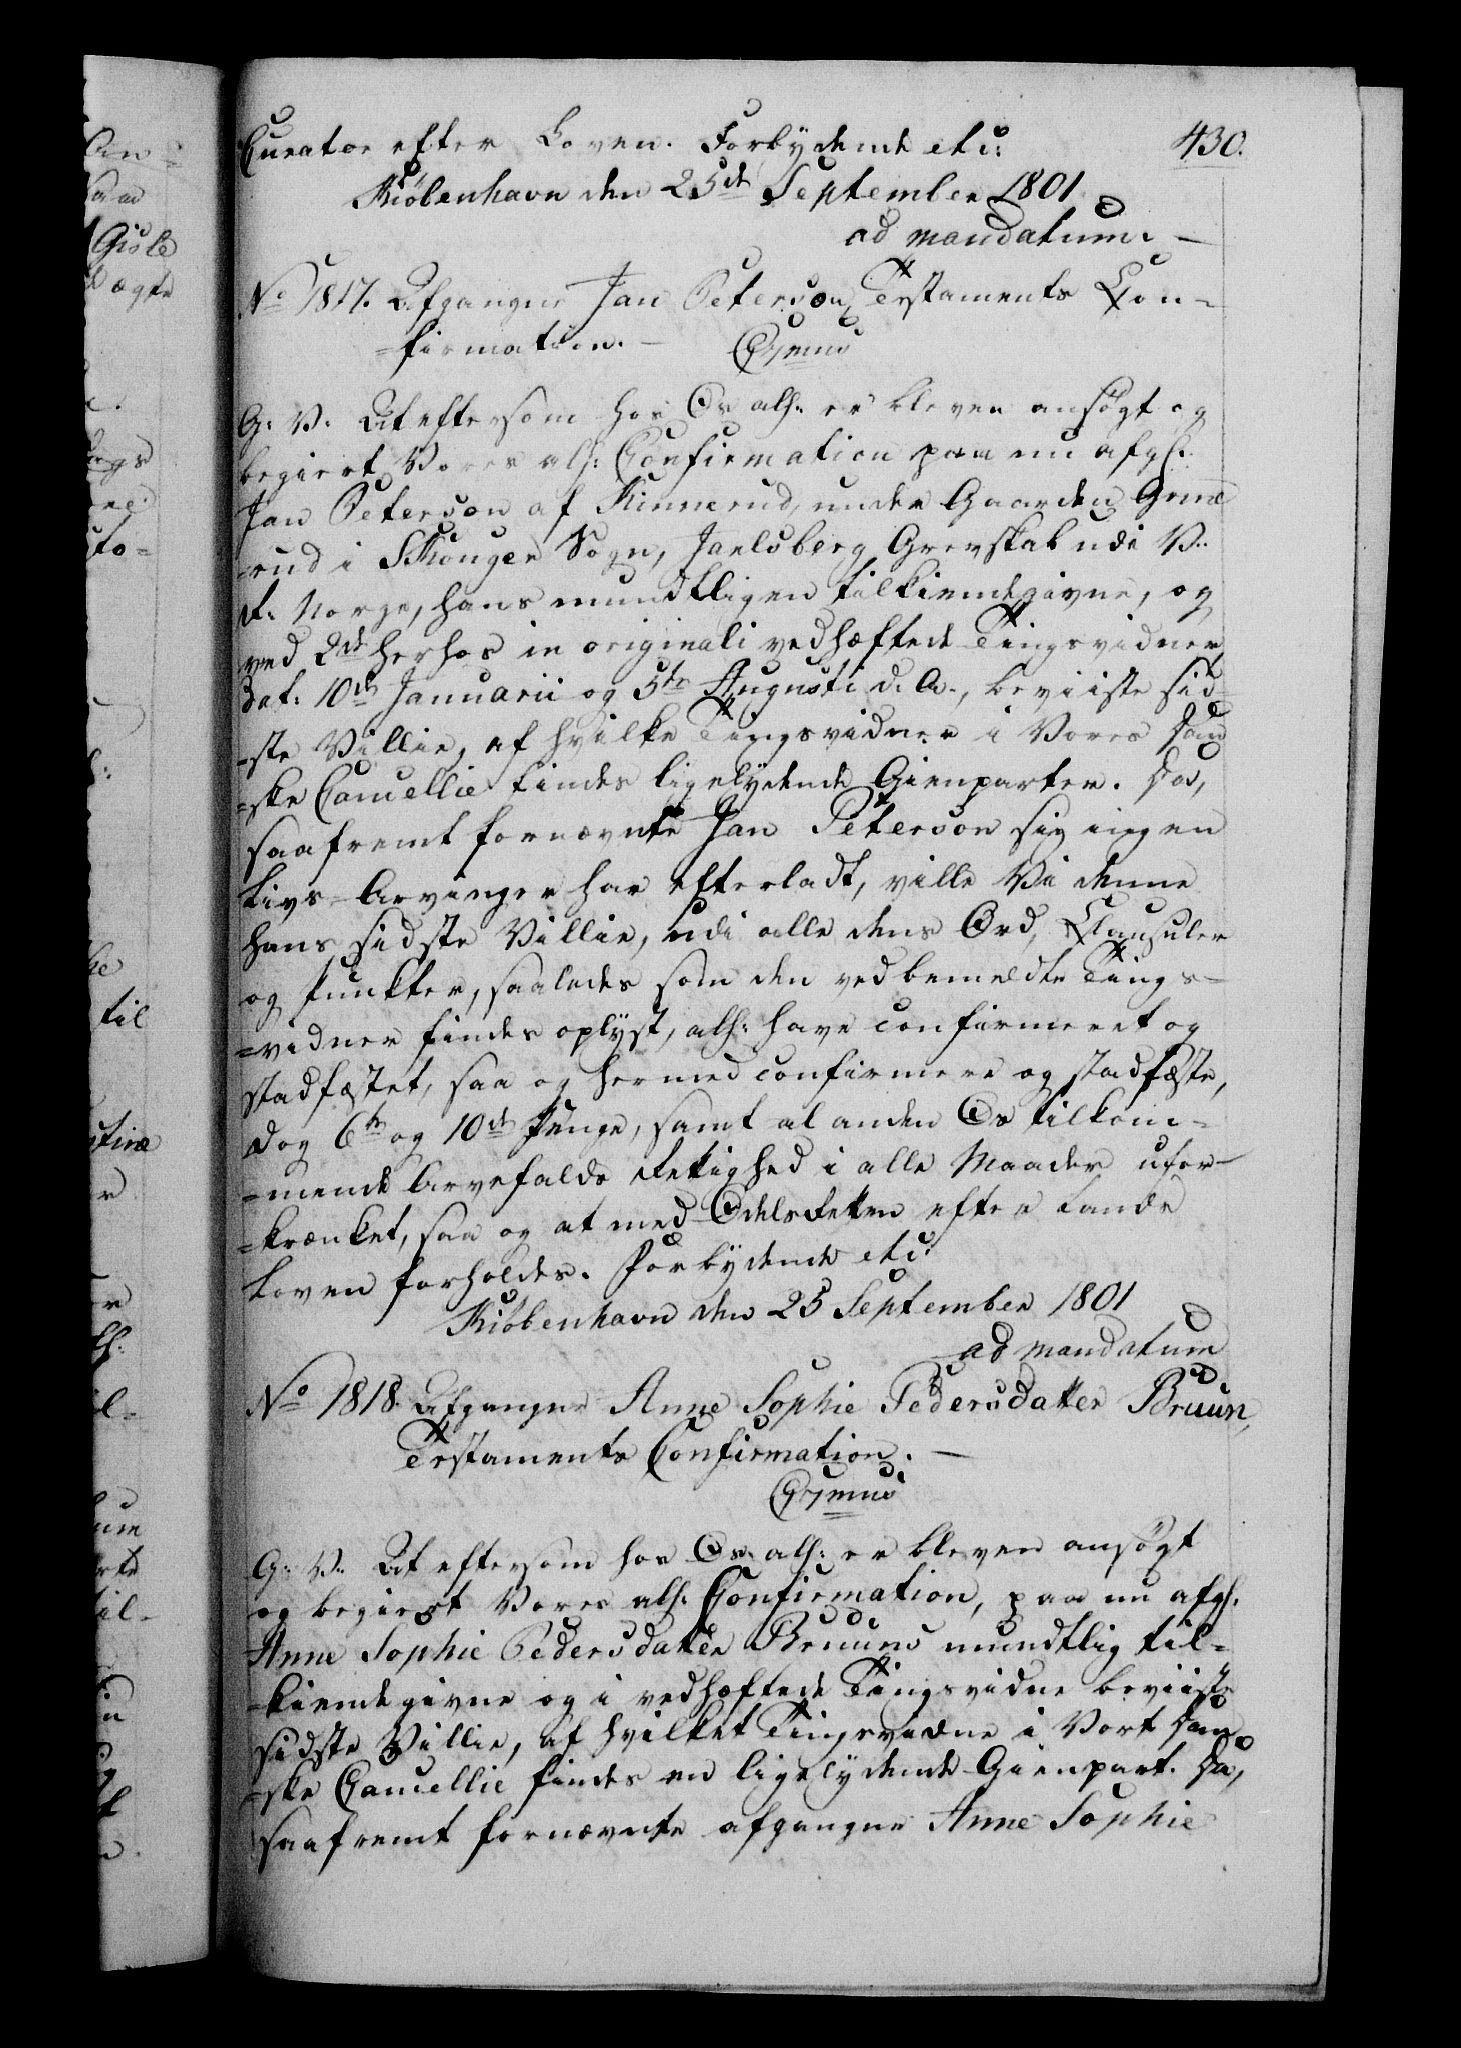 Curator efter Loven. Forbydende etc:
430.
Kiöbenhavn den 25de September 1801
ad mandatum.
No 1817. Afgangne Jan Peterson Testaments Con-
=firmation. Grmus
G: V: At eftersom hos Os als: er bleven ansögt og
begiert Vores als: Confirmation paa nu afg:
Jan Peterson af Kinnerud, under Gaarden Grime
=rud i Skouger Sogn, Jarlsberg Grevskab udi V:
R: Norge, hans mundtligen tilkiendegivne, og
ved 2de herhos in originali vedhæftede Tingsvidner
dat: 10de Januarii og 5te Augusti d: A:, beviiste sid-
-ste Villie, af hvilke Tingsvidner i Vores Dan
=ske Cancellie findes ligelydende Gienparter. Da,
saafremt fornævnte Jan Peterson sig ingen
Livs-Arvinger har efterladt, ville Vi denne
hans sidste Villie, udi alle dens Ord, Clausuler
og Puncter, saaledes som den ved bemeldte Tings-
=vidner findes oplyst, als: have confirmeret og
stadfæstet, saa og hermed confirmere og stadfæste,
dog 6te og 10de Penge, samt al anden Os tilkom-
-mende Arvefalds Rettighed i alle Maader ufor-
=krænket, saa og at med Odelsretten efter Lands
Loven forholdes. Forbydende etc:
Kiöbenhavn den 25 September 1801
ad mandatum
No 1818. Afgangne Anne Sophie Pedersdatter Bruun,
Testaments Confirmation.
Grmus
G: V: At eftersom hos Os als: er bleven ansögt
og begiert Vores als: Confirmation, paa nu afg:
Anne Sophie Pedersdatter Bruuns mundtlig til-
-kiendegivne og i vedhæftede Tingsvidne beviiste
sidste Villie, af hvilket Tingsvidne i Vort Dan
-ske Cancellie findes en ligelydende Gienpart. Da,
saafremt fornævnte afgangne Anne Sophie